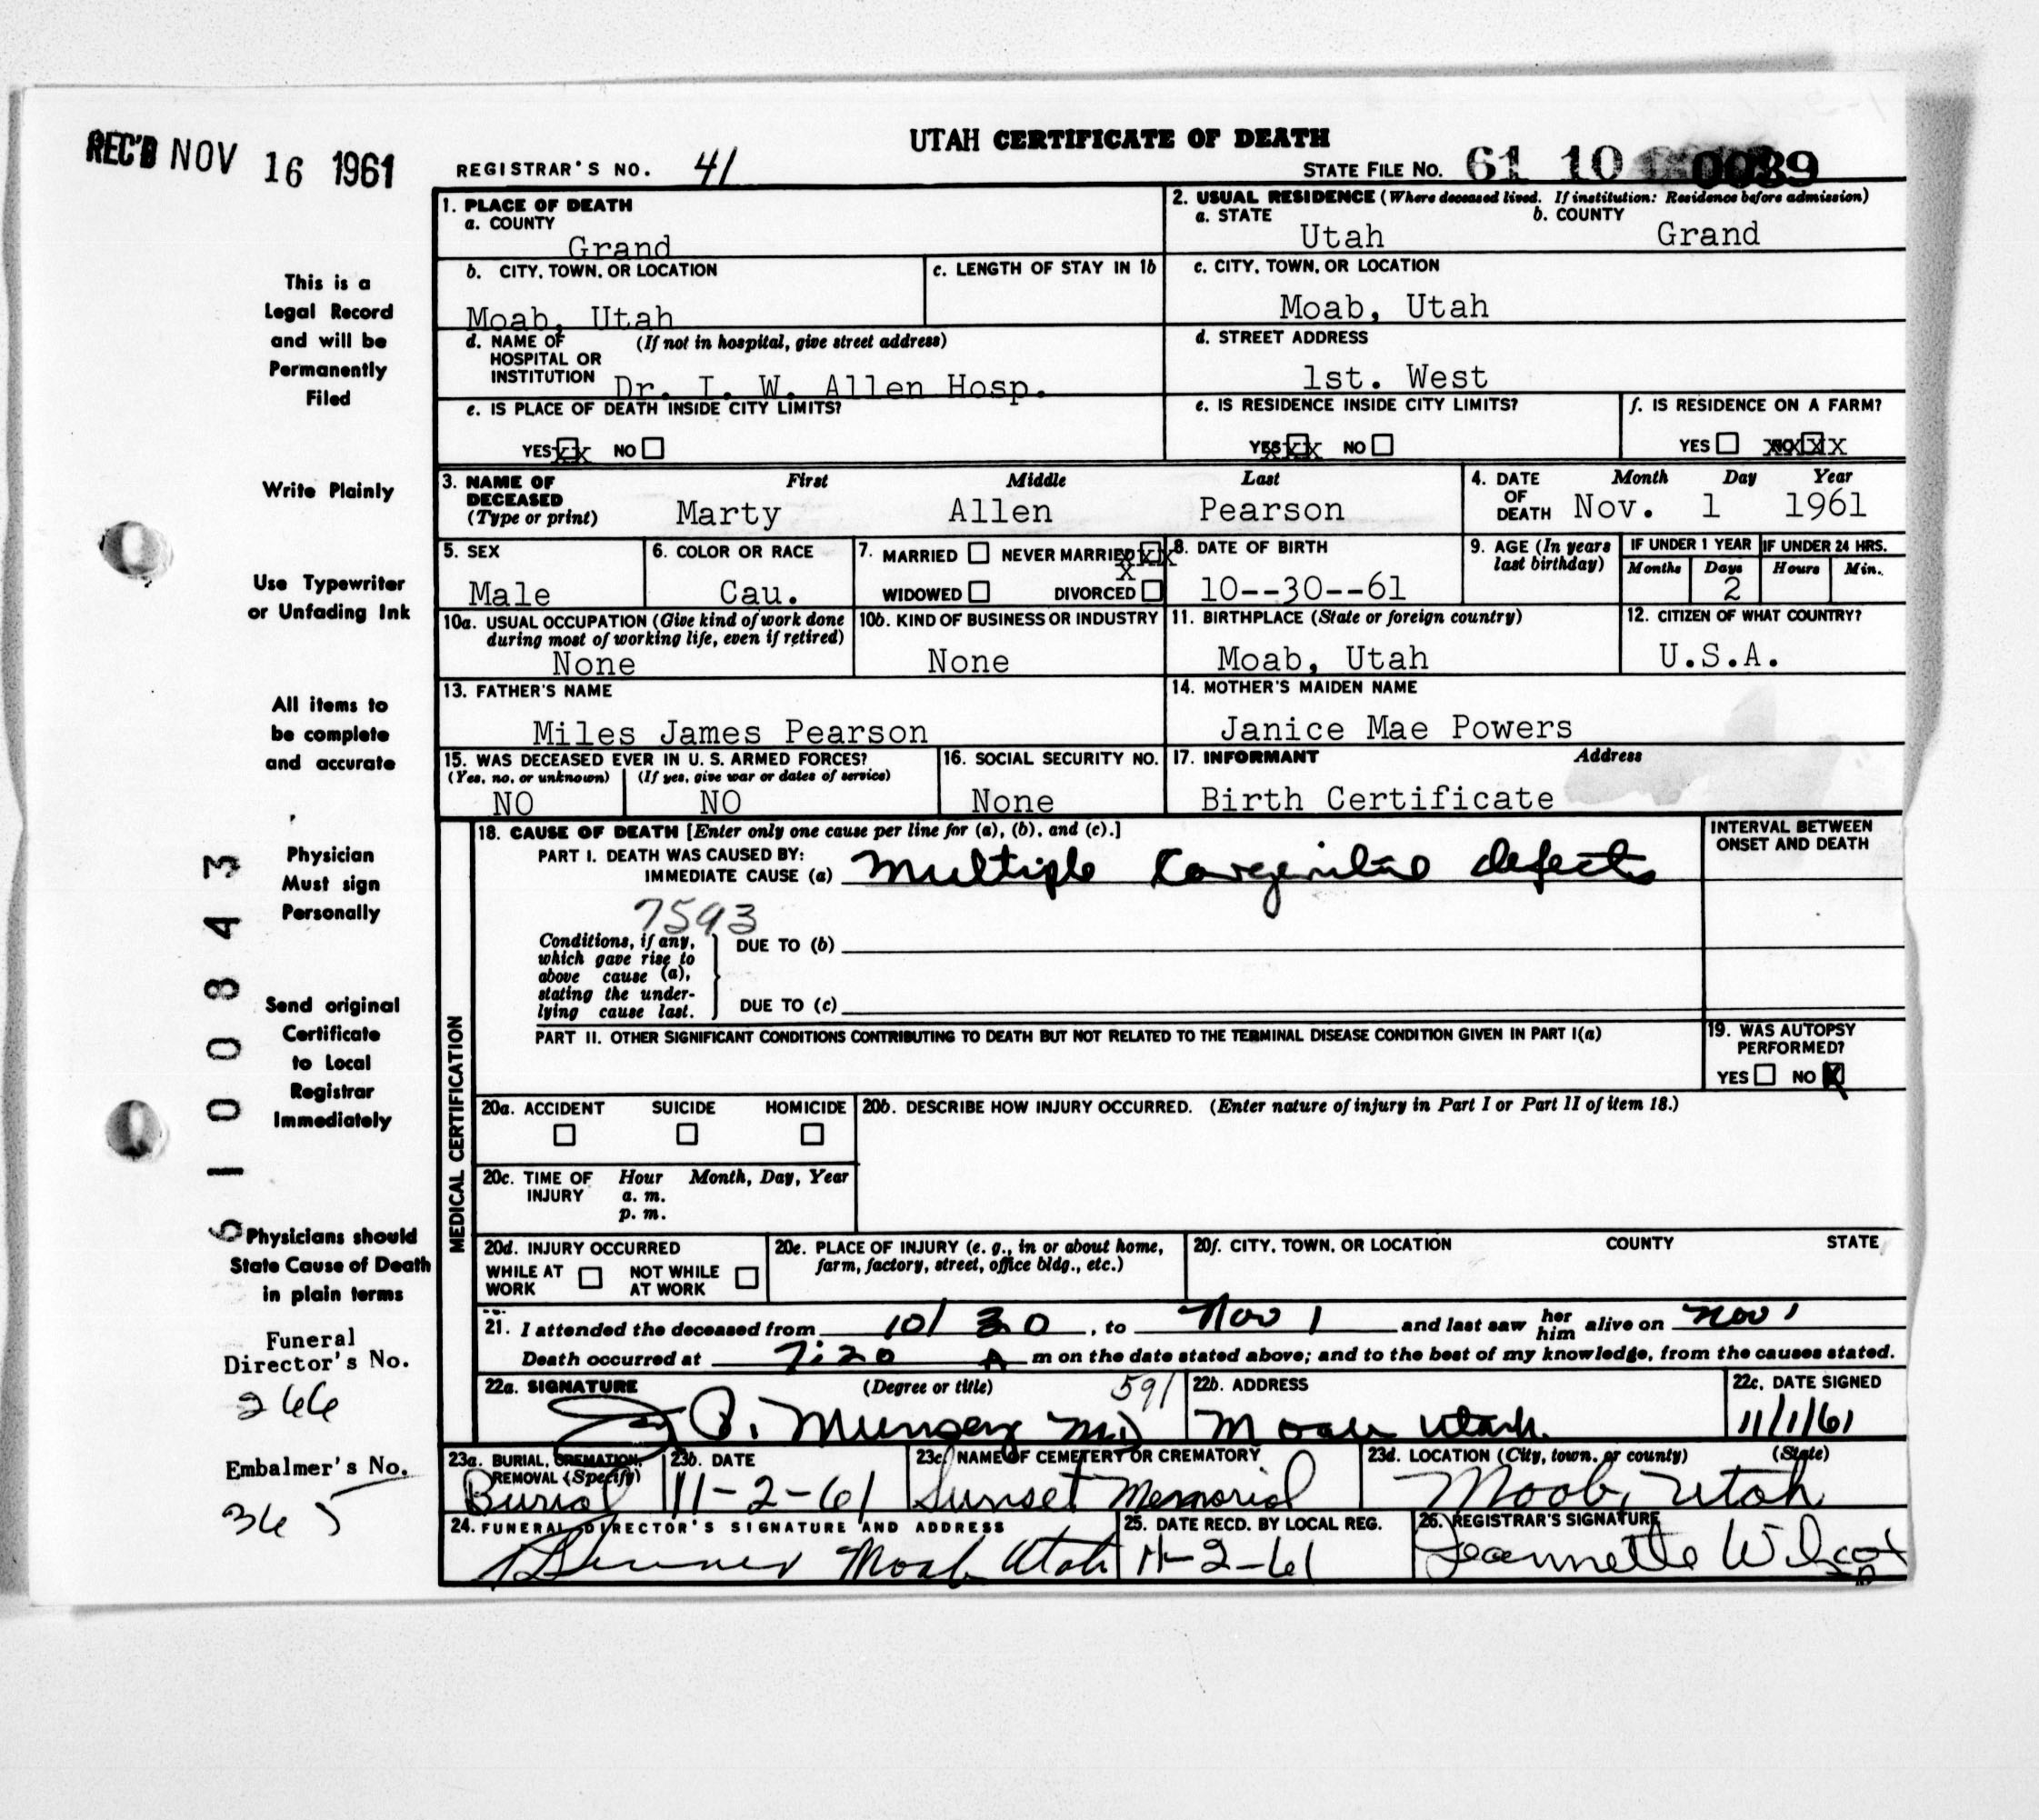 REC'D NOV 16 1961
UTAH CERTIFICATE OF DEATH
REGISTRAR'S NO. 41
STATE FILE NO. 61 10 0039
1. PLACE OF DEATH
a. COUNTY
Grand
2. USUAL RESIDENCE (Where deceased lived. If institution: Residence before admission)
a. STATE
Utah
b. COUNTY
Grand
b. CITY, TOWN, OR LOCATION
Moab, Utah
c. LENGTH OF STAY IN 1b
c. CITY, TOWN, OR LOCATION
Moab, Utah
d. NAME OF HOSPITAL OR INSTITUTION (If not in hospital, give street address)
Dr. I. W. Allen Hosp.
d. STREET ADDRESS
1st. West
e. IS PLACE OF DEATH INSIDE CITY LIMITS?
YES xx NO
e. IS RESIDENCE INSIDE CITY LIMITS?
YES xxx NO
f. IS RESIDENCE ON A FARM?
YES NO xxxx
3. NAME OF DECEASED (Type or print)
First Middle Last
Marty Allen Pearson
4. DATE OF DEATH
Month Day Year
Nov. 1 1961
5. SEX
Male
6. COLOR OR RACE
Cau.
7. MARRIED NEVER MARRIED xxx
WIDOWED DIVORCED
8. DATE OF BIRTH
10--30--61
9. AGE (In years last birthday)
IF UNDER 1 YEAR
Months Days
2
IF UNDER 24 HRS.
Hours Min.
10a. USUAL OCCUPATION (Give kind of work done during most of working life, even if retired)
None
10b. KIND OF BUSINESS OR INDUSTRY
None
11. BIRTHPLACE (State or foreign country)
Moab, Utah
12. CITIZEN OF WHAT COUNTRY?
U.S.A.
13. FATHER'S NAME
Miles James Pearson
14. MOTHER'S MAIDEN NAME
Janice Mae Powers
15. WAS DECEASED EVER IN U. S. ARMED FORCES?
(Yes, no, or unknown) (If yes, give war or dates of service)
NO NO
16. SOCIAL SECURITY NO.
None
17. INFORMANT Address
Birth Certificate
MEDICAL CERTIFICATION
18. CAUSE OF DEATH [Enter only one cause per line for (a), (b), and (c).]
PART I. DEATH WAS CAUSED BY:
IMMEDIATE CAUSE (a) Multiple Congenital defects
7593
INTERVAL BETWEEN ONSET AND DEATH
Conditions, if any, which gave rise to above cause (a), stating the underlying cause last.
DUE TO (b)
DUE TO (c)
PART II. OTHER SIGNIFICANT CONDITIONS CONTRIBUTING TO DEATH BUT NOT RELATED TO THE TERMINAL DISEASE CONDITION GIVEN IN PART I(a)
19. WAS AUTOPSY PERFORMED?
YES NO X
20a. ACCIDENT SUICIDE HOMICIDE
20b. DESCRIBE HOW INJURY OCCURRED. (Enter nature of injury in Part I or Part II of item 18.)
20c. TIME OF INJURY
Hour Month, Day, Year
a. m.
p. m.
20d. INJURY OCCURRED
WHILE AT WORK NOT WHILE AT WORK
20e. PLACE OF INJURY (e. g., in or about home, farm, factory, street, office bldg., etc.)
20f. CITY, TOWN, OR LOCATION COUNTY STATE
21. I attended the deceased from 10/30, to Nov 1 and last saw her him alive on Nov 1
Death occurred at 7:20 A m on the date stated above; and to the best of my knowledge, from the causes stated.
22a. SIGNATURE (Degree or title) 591
J P. Munsey MD
22b. ADDRESS
Moab Utah
22c. DATE SIGNED
11/1/61
23a. BURIAL, CREMATION, REMOVAL (Specify)
Burial
23b. DATE
11-2-61
23c. NAME OF CEMETERY OR CREMATORY
Sunset Memorial
23d. LOCATION (City, town, or county) (State)
Moab, Utah
24. FUNERAL DIRECTOR'S SIGNATURE AND ADDRESS
Moab Utah
25. DATE RECD. BY LOCAL REG.
11-2-61
26. REGISTRAR'S SIGNATURE
Jeannette Wilcox
This is a
Legal Record
and will be
Permanently
Filed
Write Plainly
Use Typewriter
or Unfading Ink
All items to
be complete
and accurate
Physician
Must sign
Personally
Send original
Certificate
to Local
Registrar
Immediately
Physicians should
State Cause of Death
in plain terms
Funeral
Director's No.
266
Embalmer's No.
365
6100843